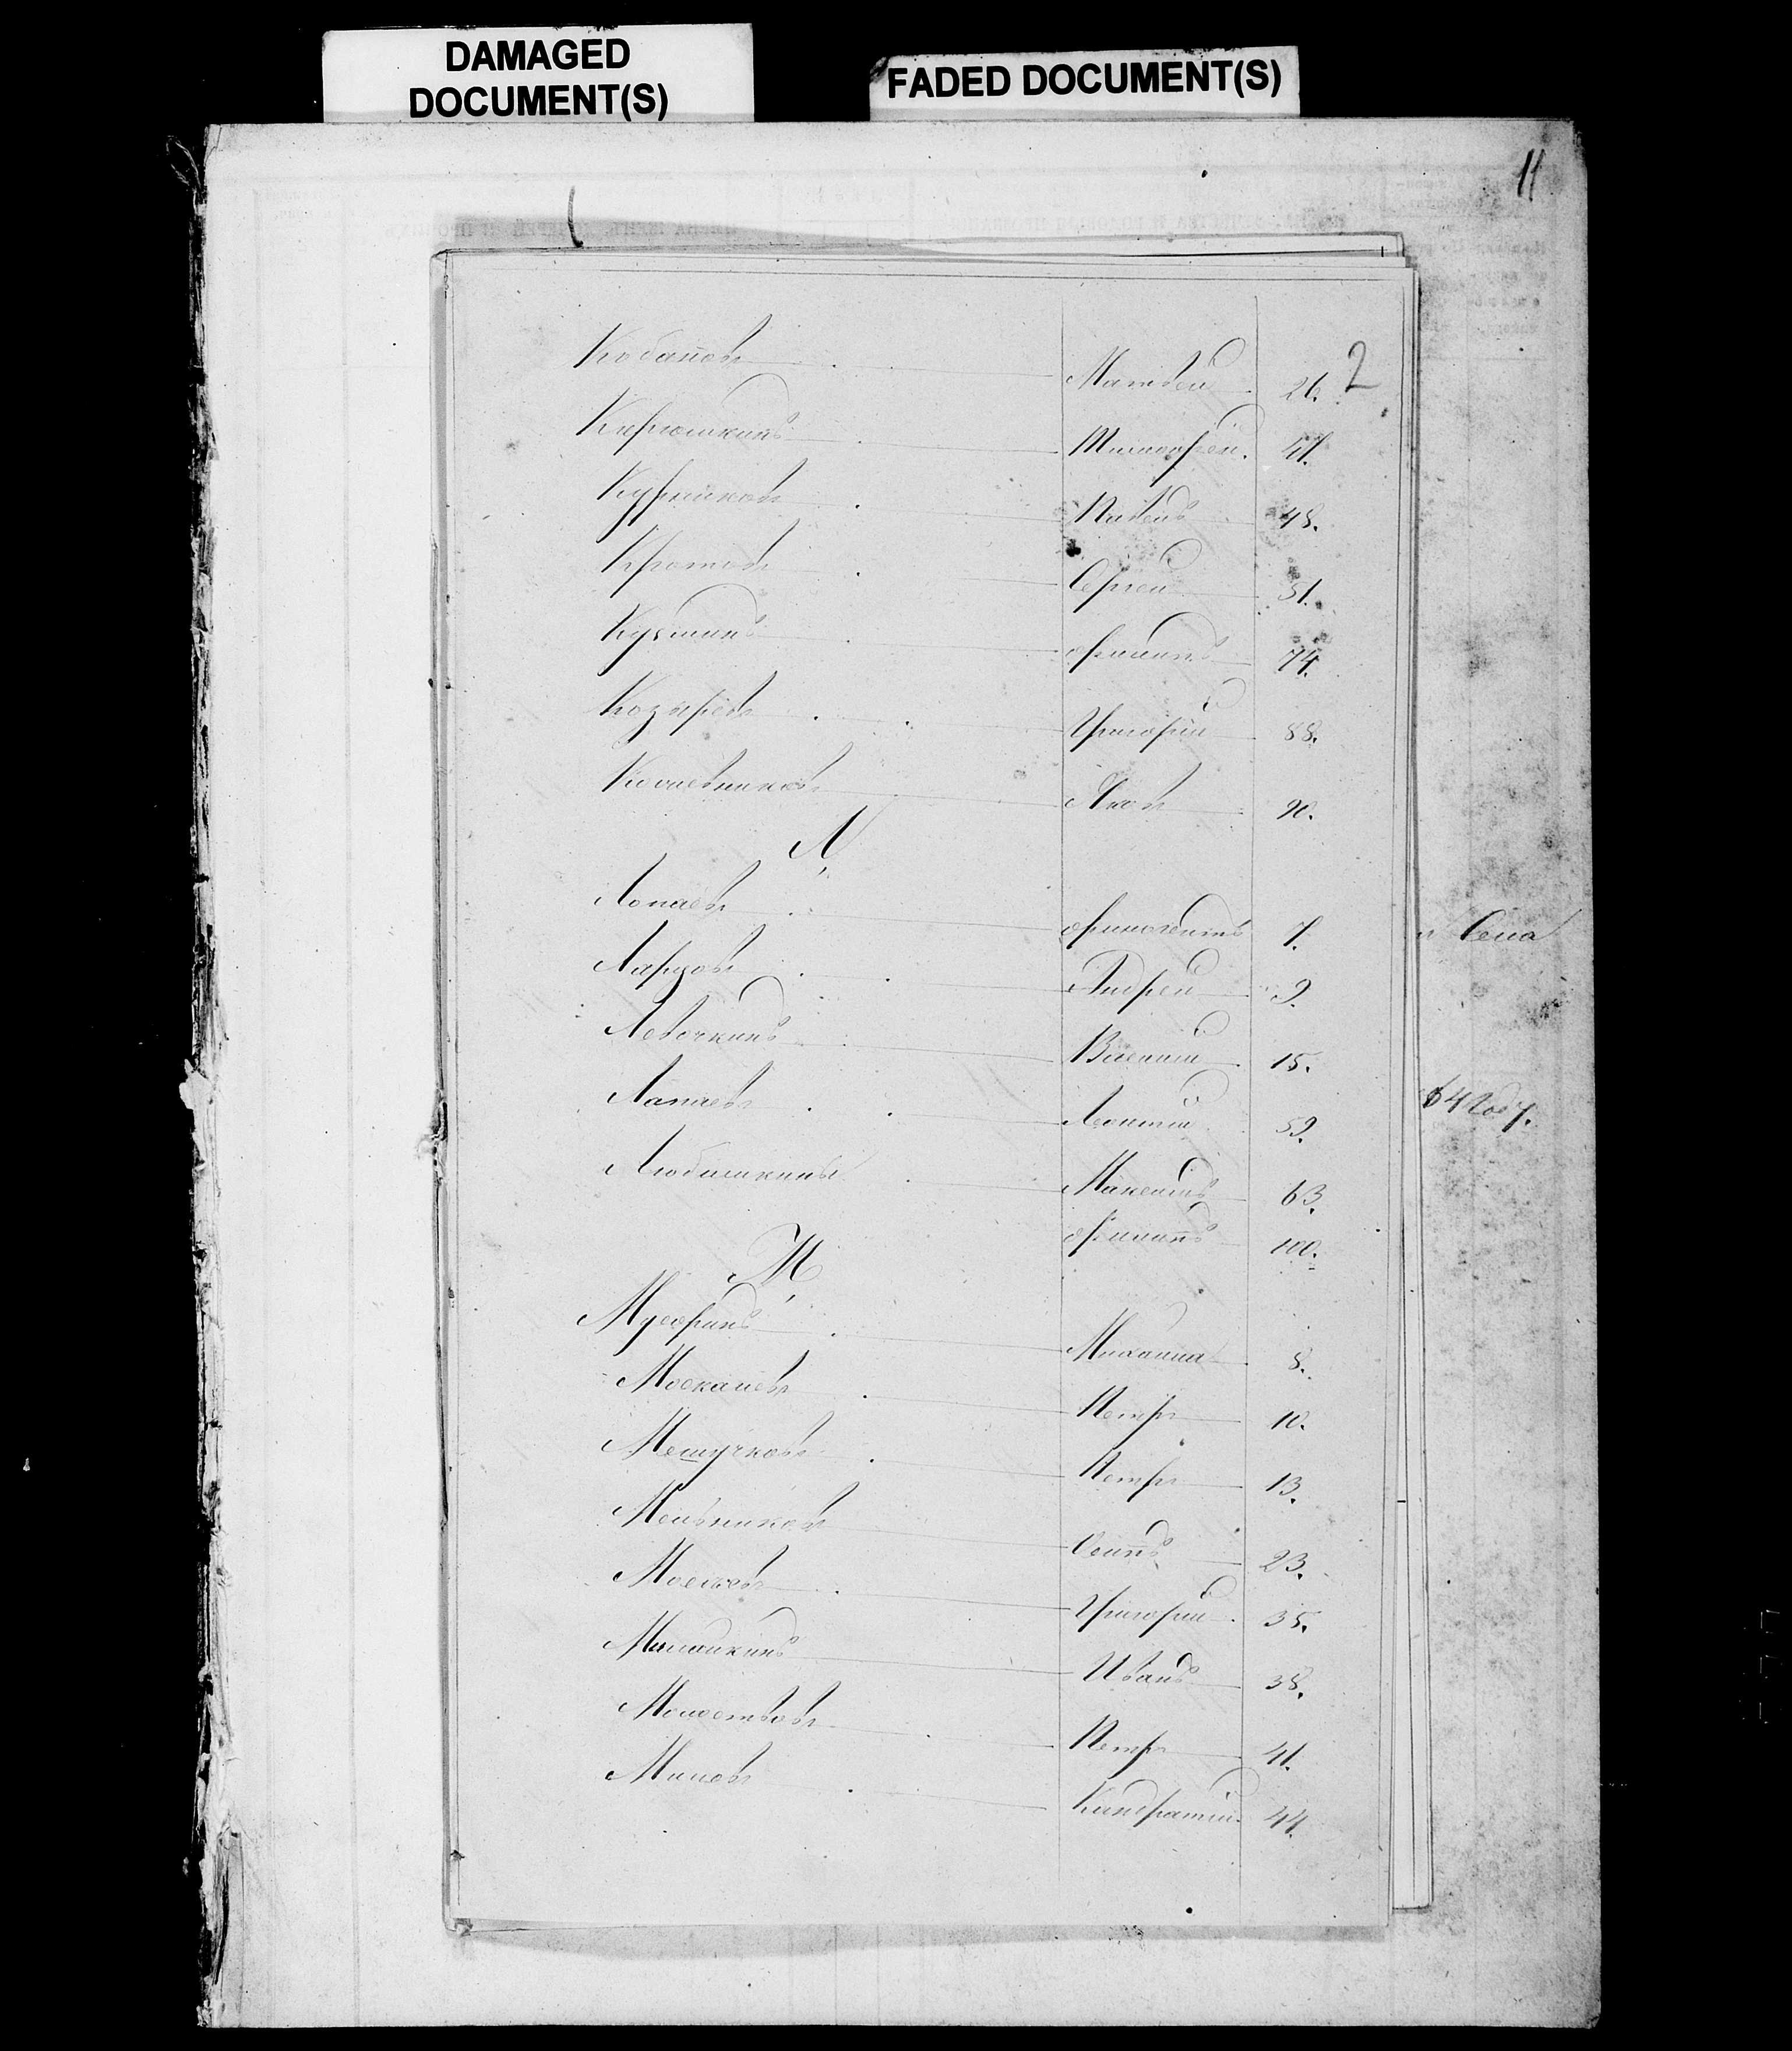 DAMAGED
DOCUMENT(S)
FADED DOCUMENT(S)
11
2
Кабановъ Матвей 26.
Кирюшкинъ Тимофей. 41.
Курниковъ Павелъ 48.
Кротовъ Сергей 51.
Кузминъ Филипъ 74.
Козыревъ Григорий 88.
Кочневниковъ Яковъ 90.
Л
Лопаевъ 7.
Ларцовъ Андрей 9.
Левочкинъ Василий 15.
Лапаевъ Леонтий 59.
Любишкины Максимъ 63.
Филипъ 100.
М
Михаила 8.
Москалевъ Петръ 10.
Мешучковъ Петръ 13.
Мельниковъ Осипъ 23.
Григорий 35.
Малашкинъ Иванъ 38.
Петръ 41.
Миновъ Кандратий 44.
Села
64 году.